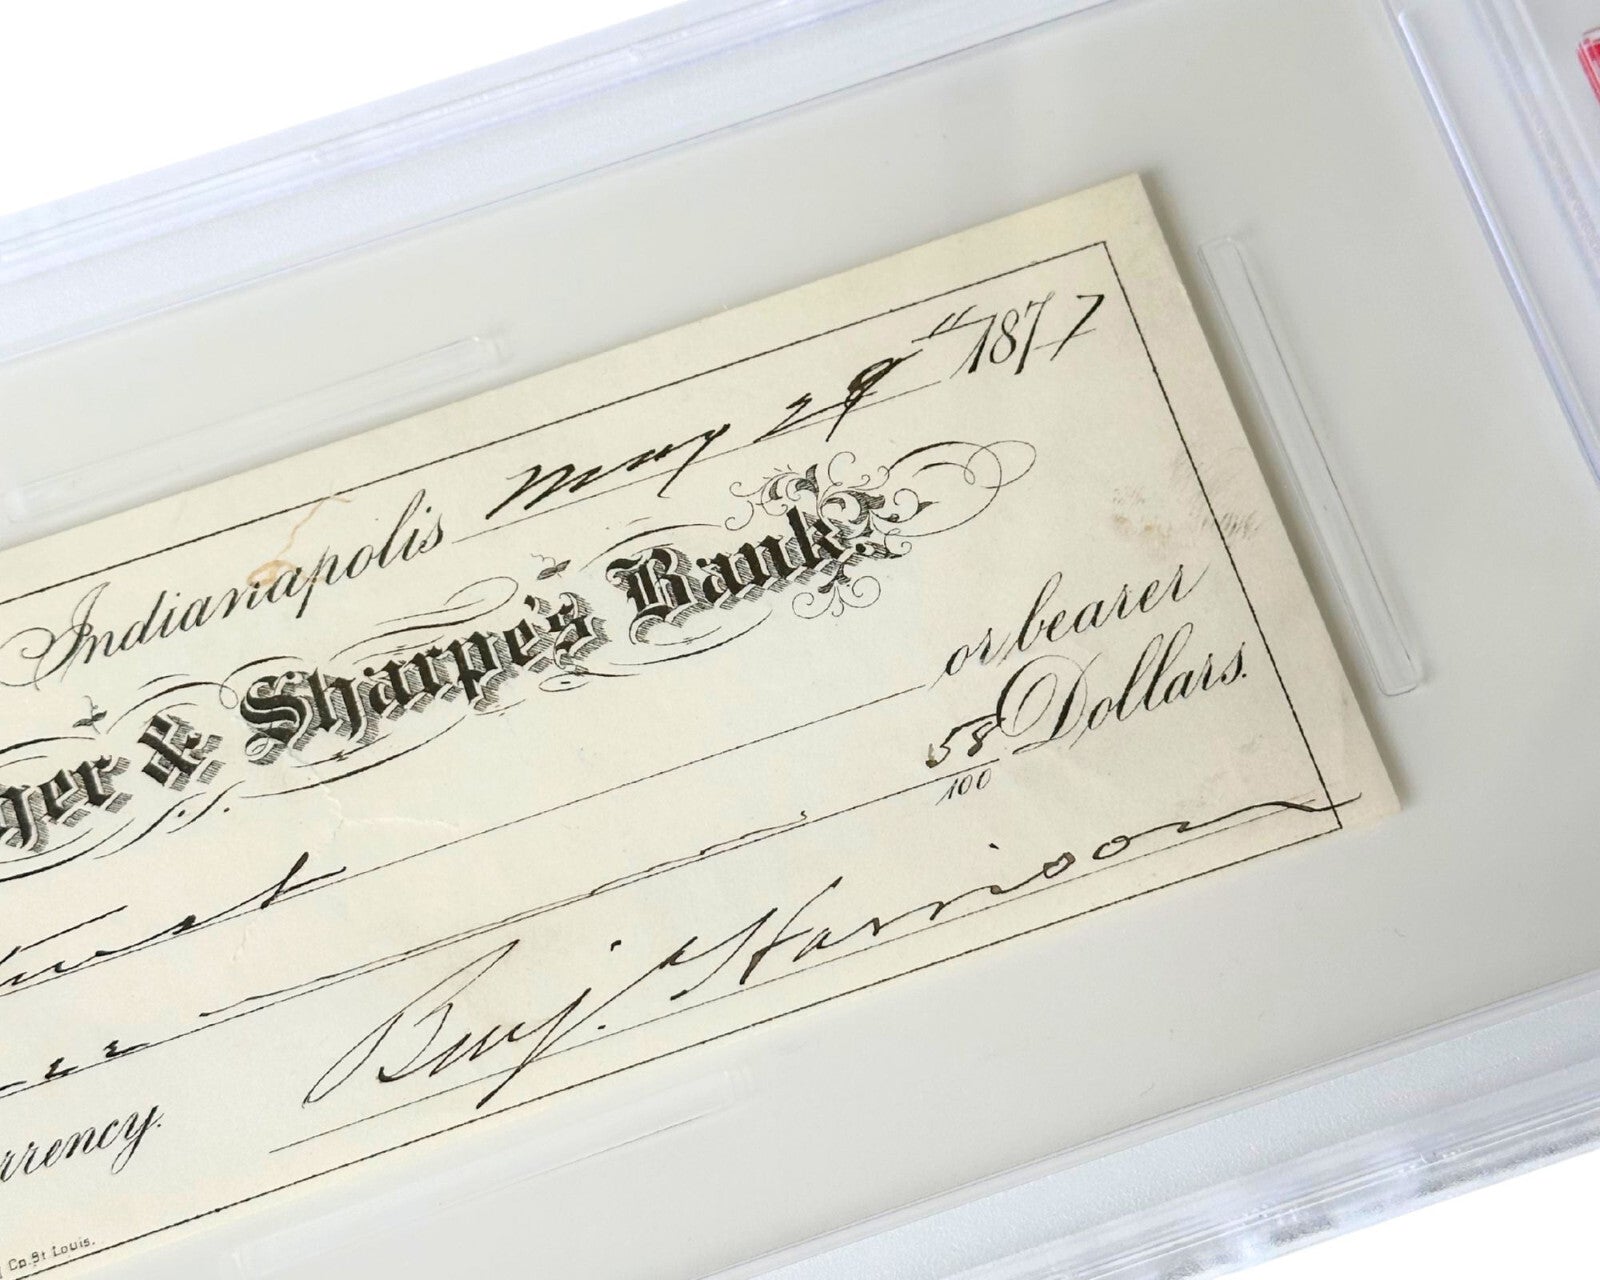 Indianapolis May 29" 1877
ger & Sharpe's Bank.
or bearer
58/100 Dollars.
Benj. Harrison
rrency.
Co. St. Louis.